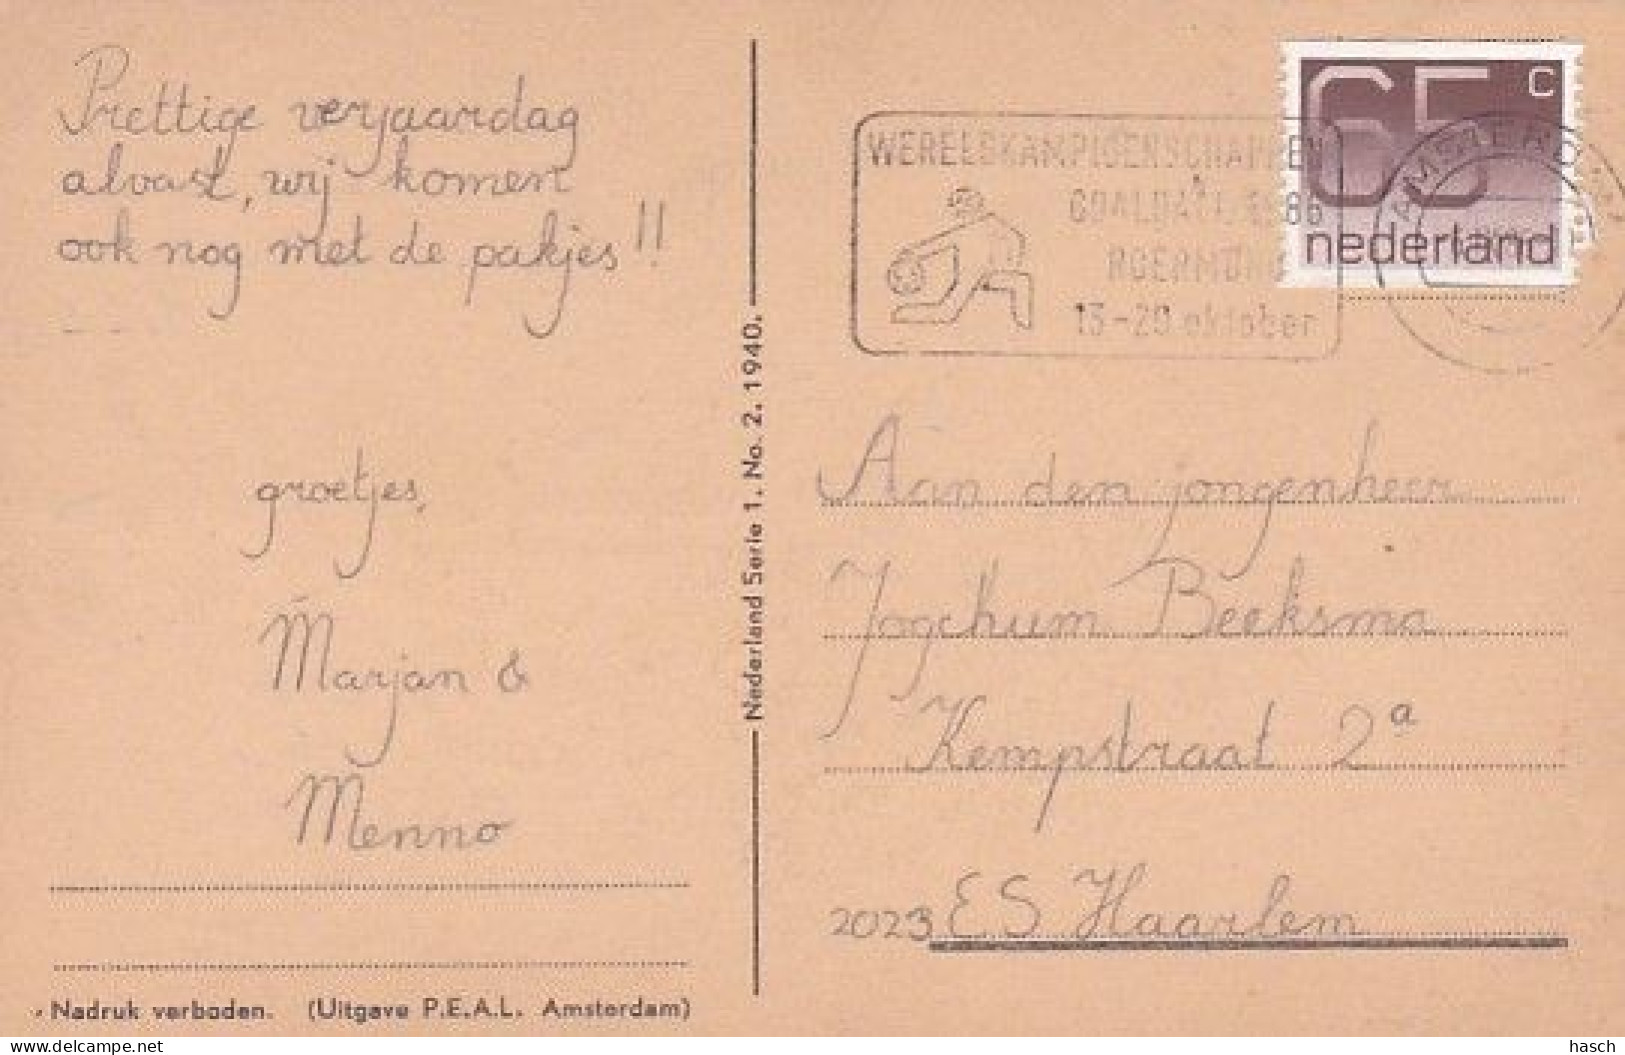 Prettige verjaardag
alvast, wij komen
ook nog met de pakjes!!
groetjes,
Marjan &
Menno
Nadruk verboden. (Uitgave P.E.A.L. Amsterdam)
Nederland Serie 1. No. 2. 1940.
WERELDKAMPIOENSCHAPPEN
GOALBALL 1986
ROERMOND
13-20 oktober
65 c
nederland
AMSTERD
Aan den jongenheer
Jogchum Beeksma
Kempstraat 2a
2023 ES Haarlem
hasch